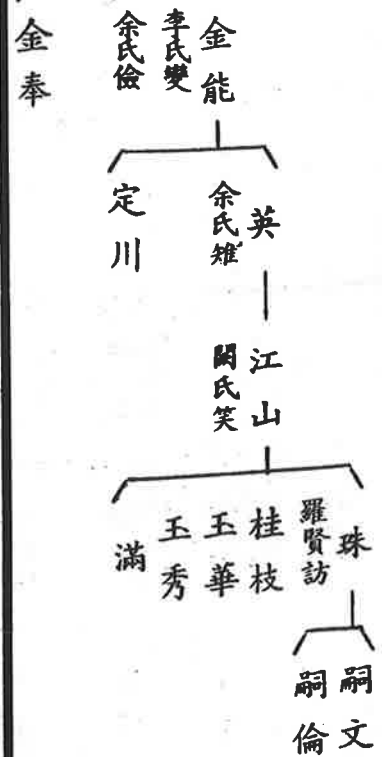 金能
李氏變
余氏儉
金奉
英
余氏雉
定川
江山
闕氏笑
珠
羅賢訪
桂枝
玉華
玉秀
滿
嗣文
嗣倫